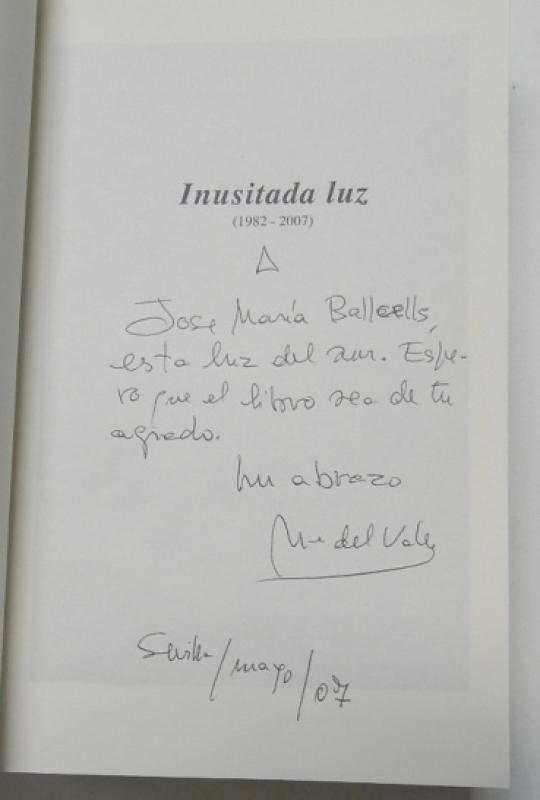 Inusitada luz
(1982 - 2007)
A
Jose María Ballcells,
esta luz del sur. Espe-
ro que el libro sea de tu
agrado.
Un abrazo
Mª del Valle
Sevilla/mayo/07